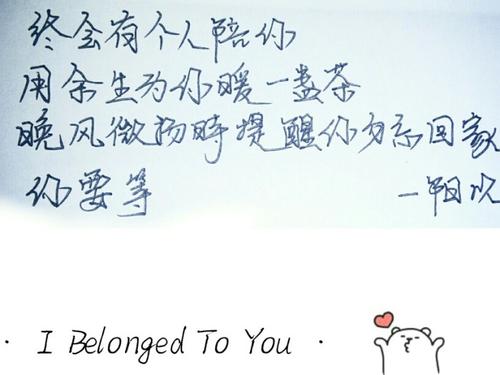 终会有个人陪你
用余生为你暖一盏茶
晚风微扬時提醒你勿忘回家
你要等
· I Belonged To You ·